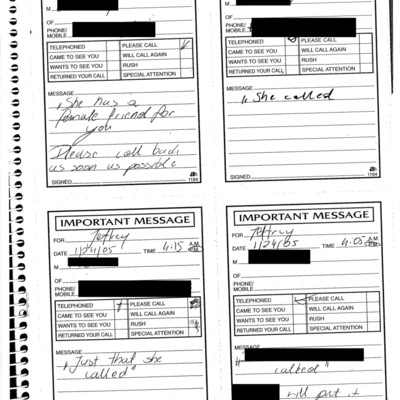 M
OF
PHONE/
MOBILE
TELEPHONED PLEASE CALL
CAME TO SEE YOU WILL CALL AGAIN
WANTS TO SEE YOU RUSH
RETURNED YOUR CALL SPECIAL ATTENTION
MESSAGE
"She has a
female friend for
you
Please call back
as soon as possible
SIGNED 1184
OF
PHONE/
MOBILE
TELEPHONED PLEASE CALL
CAME TO SEE YOU WILL CALL AGAIN
WANTS TO SEE YOU RUSH
RETURNED YOUR CALL SPECIAL ATTENTION
MESSAGE
"She called
SIGNED 1184
IMPORTANT MESSAGE
FOR Jeffrey
DATE 1/24/05 TIME 4:15 A.M. P.M.
M
OF
PHONE/
MOBILE
TELEPHONED PLEASE CALL
CAME TO SEE YOU WILL CALL AGAIN
WANTS TO SEE YOU RUSH
RETURNED YOUR CALL SPECIAL ATTENTION
MESSAGE
"Just that she
called"
IMPORTANT MESSAGE
FOR Jeffrey
DATE 1/24/05 TIME 4:05 A.M. P.M.
M
OF
PHONE/
MOBILE
TELEPHONED PLEASE CALL
CAME TO SEE YOU WILL CALL AGAIN
WANTS TO SEE YOU RUSH
RETURNED YOUR CALL SPECIAL ATTENTION
MESSAGE
called"
will put it